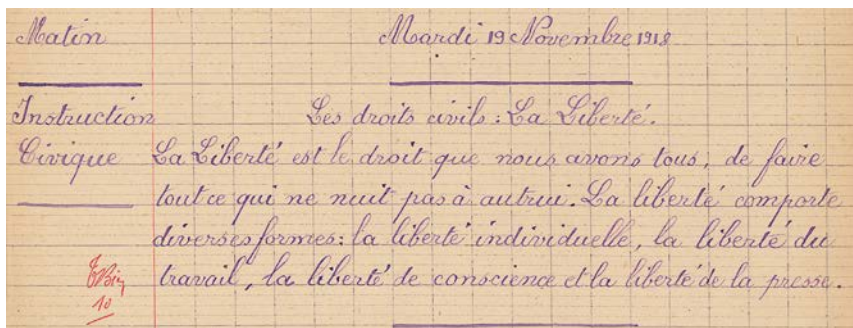 Matin Mardi 19 Novembre 1918
Instruction Les droits civils : La Liberté.
Civique La Liberté est le droit que nous avons tous, de faire
tout ce qui ne nuit pas à autrui. La liberté comporte
diverses formes : la liberté individuelle, la liberté du
TBien travail, la liberté de conscience et la liberté de la presse.
10